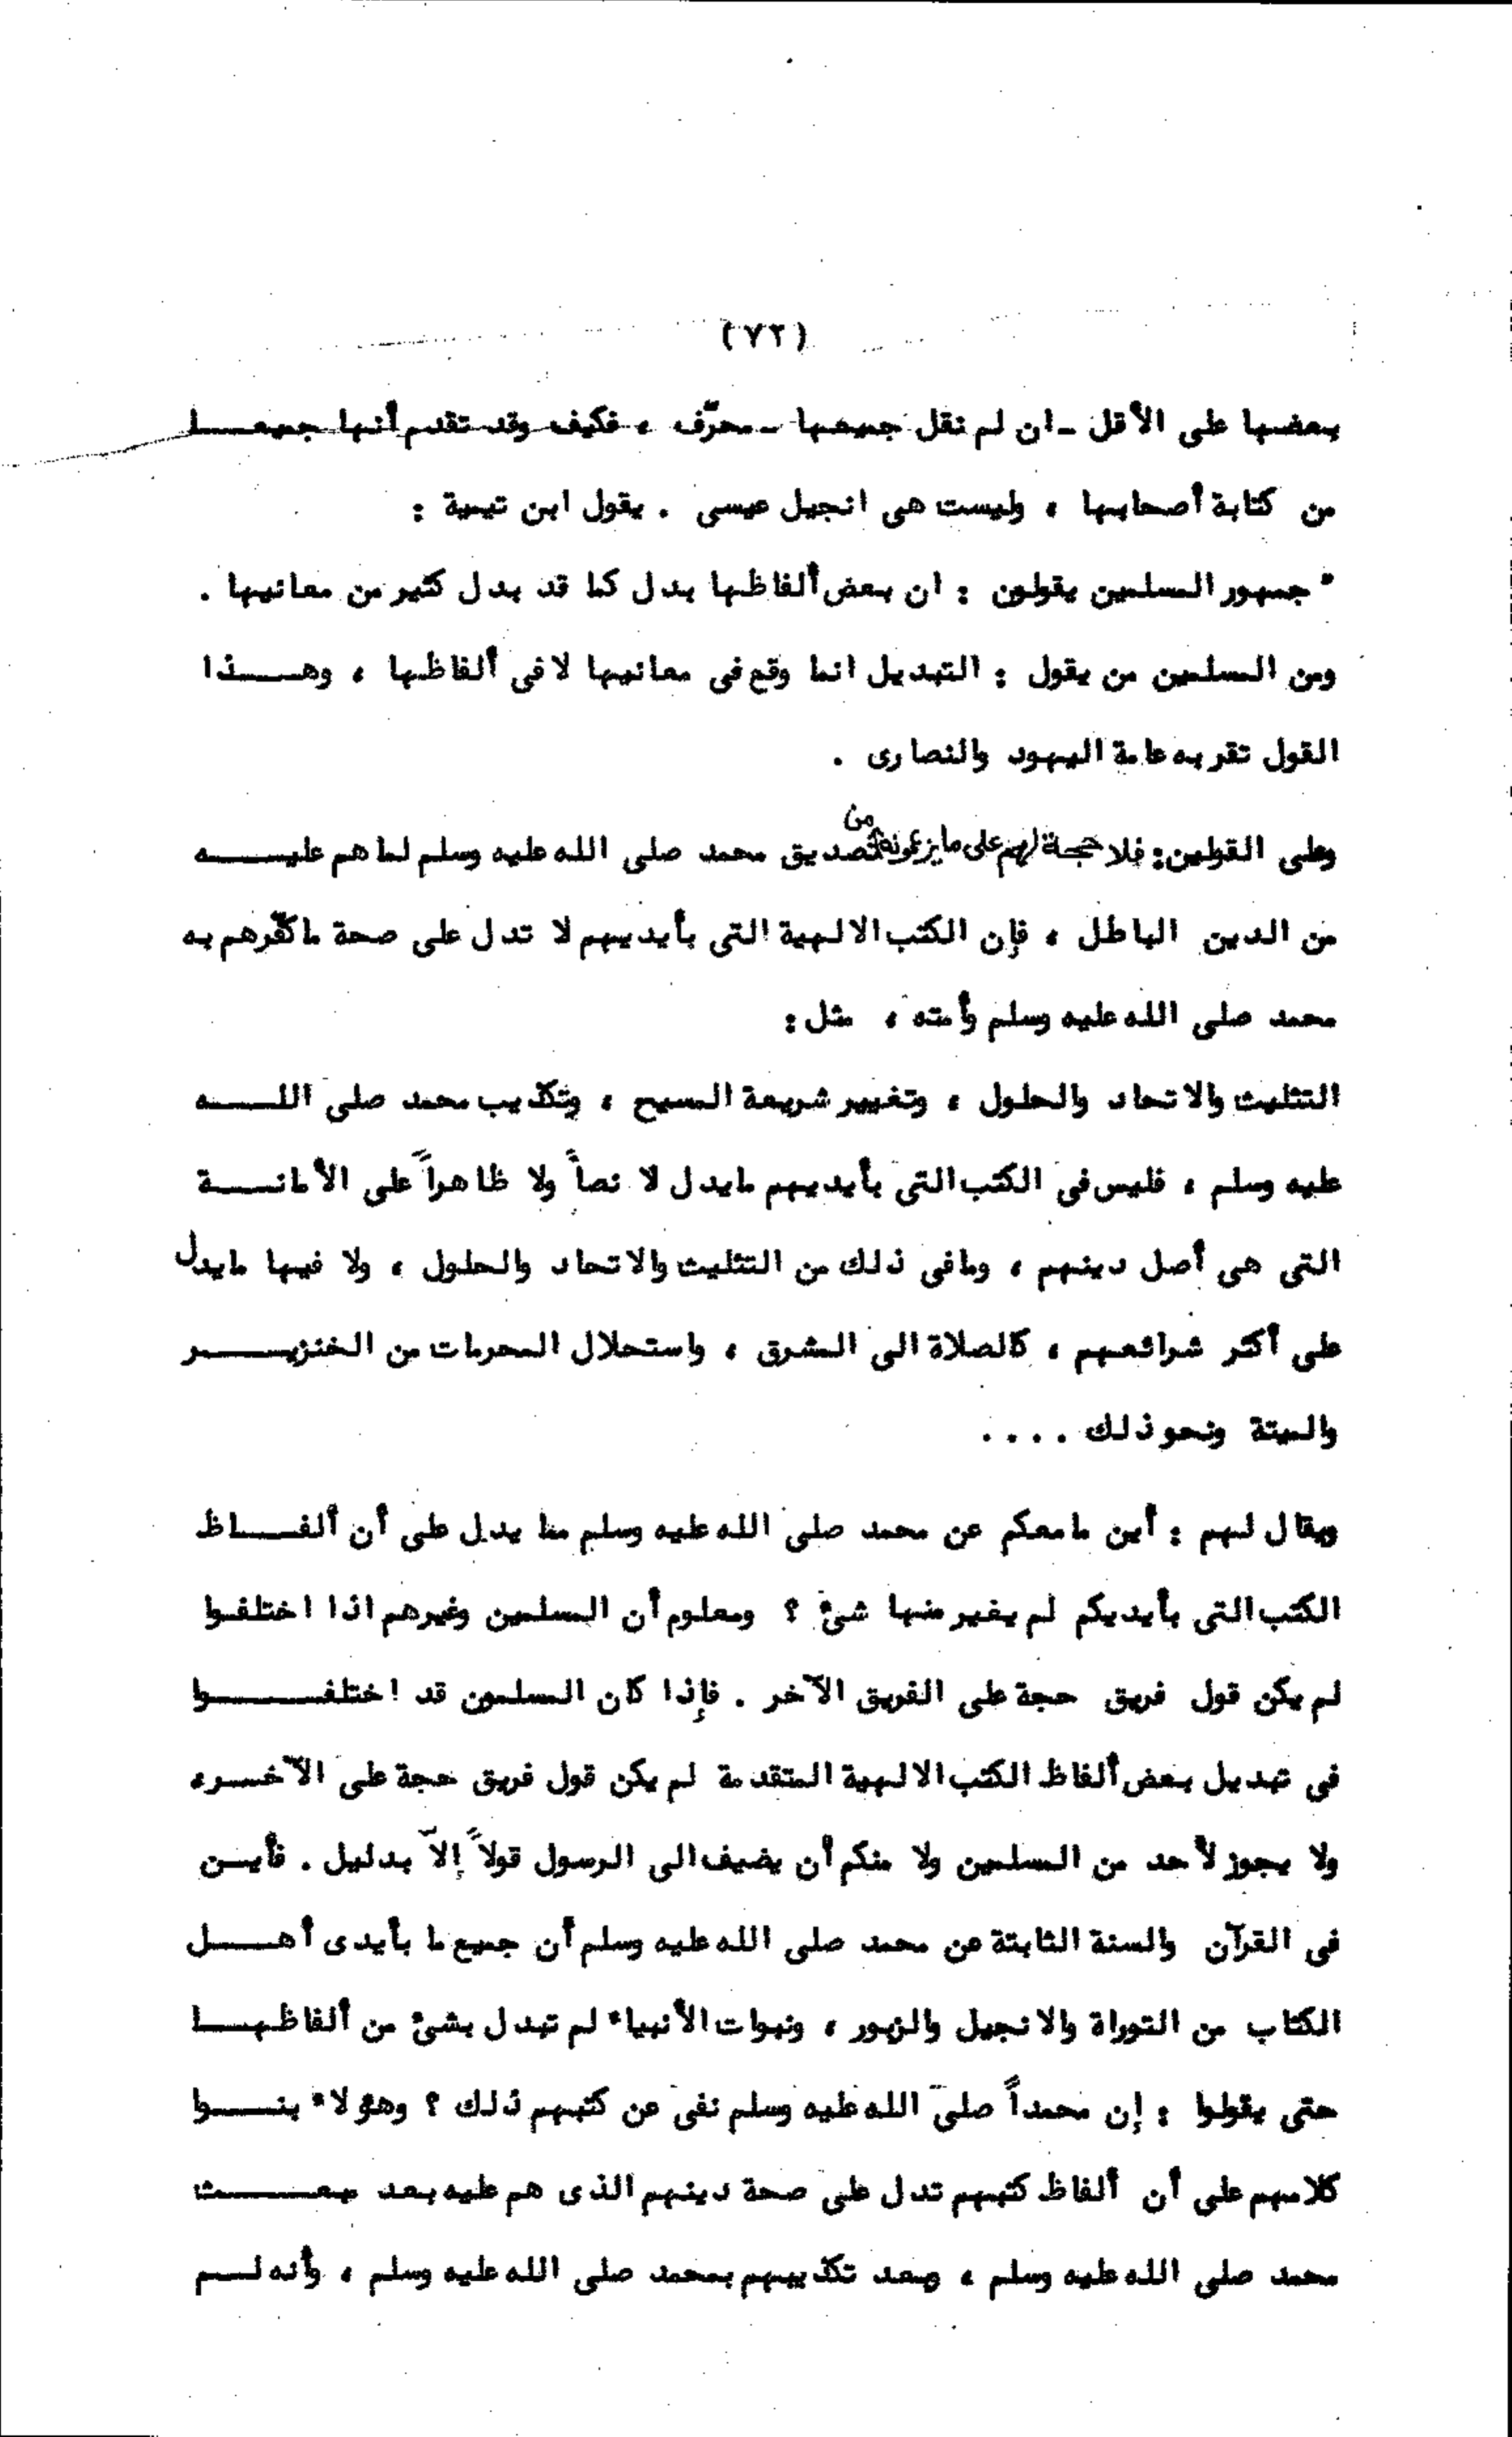 (٧٢)
بعضها على الأقل - ان لم نقل جميعها - محرّف ، فكيف وقد تقدم أنها جميعـــا
من كتابة أصحابها ، وليست هى انجيل عيسى . يقول ابن تيمية :
" جمهور المسلمين يقولون : ان بعض ألفاظها بدل كما قد بدل كثير من معانيها .
ومن المسلمين من يقول : التبديل انما وقع فى معانيها لا فى ألفاظها ، وهـــذا
القول تقر به عامة اليهود والنصارى .
وعلى القولين : فلا حجة لهم على ما يزعمونه من تصديق محمد صلى الله عليه وسلم لما هم عليـــه
من الدين الباطل ، فإن الكتب الالهية التى بأيديهم لا تدل على صحة ما كفّرهم به
محمد صلى الله عليه وسلم وأمته ، مثل :
التثليث والاتحاد والحلول ، وتغيير شريعة المسيح ، وتكذيب محمد صلى اللـــه
عليه وسلم ، فليس فى الكتب التى بأيديهم مايدل لا نصاً ولا ظاهراً على الأمانـــة
التى هى أصل دينهم ، ومافى ذلك من التثليث والاتحاد والحلول ، ولا فيها مايدل
على أكثر شرائعهم ، كالصلاة الى المشرق ، واستحلال المحرمات من الخنزيـــر
والميتة ونحو ذلك ....
ويقال لهم : أين مامعكم عن محمد صلى الله عليه وسلم مما يدل على أن ألفـــاظ
الكتب التى بأيديكم لم يغير منها شئ ؟ ومعلوم أن المسلمين وغيرهم اذا اختلفـوا
لم يكن قول فريق حجة على الفريق الآخر . فإذا كان المسلمون قد اختلفـــوا
فى تبديل بعض ألفاظ الكتب الالهية المتقدمة لم يكن قول فريق حجة على الآخـر،
ولا يجوز لأحد من المسلمين ولا منكم أن يضيف الى الرسول قولاً إلاّ بدليل . فأيــن
فى القرآن والسنة الثابتة عن محمد صلى الله عليه وسلم أن جميع ما بأيدى أهـــل
الكتاب من التوراة والانجيل والزبور ، ونبوات الأنبياء لم تبدل بشئ من ألفاظهـــا
حتى يقولوا : إن محمداً صلى الله عليه وسلم نفى عن كتبهم ذلك ؟ وهؤلاء بنـــوا
كلامهم على أن ألفاظ كتبهم تدل على صحة دينهم الذى هم عليه بعد مبعـــث
محمد صلى الله عليه وسلم ، وبعد تكذيبهم بمحمد صلى الله عليه وسلم ، وأنه لـــم